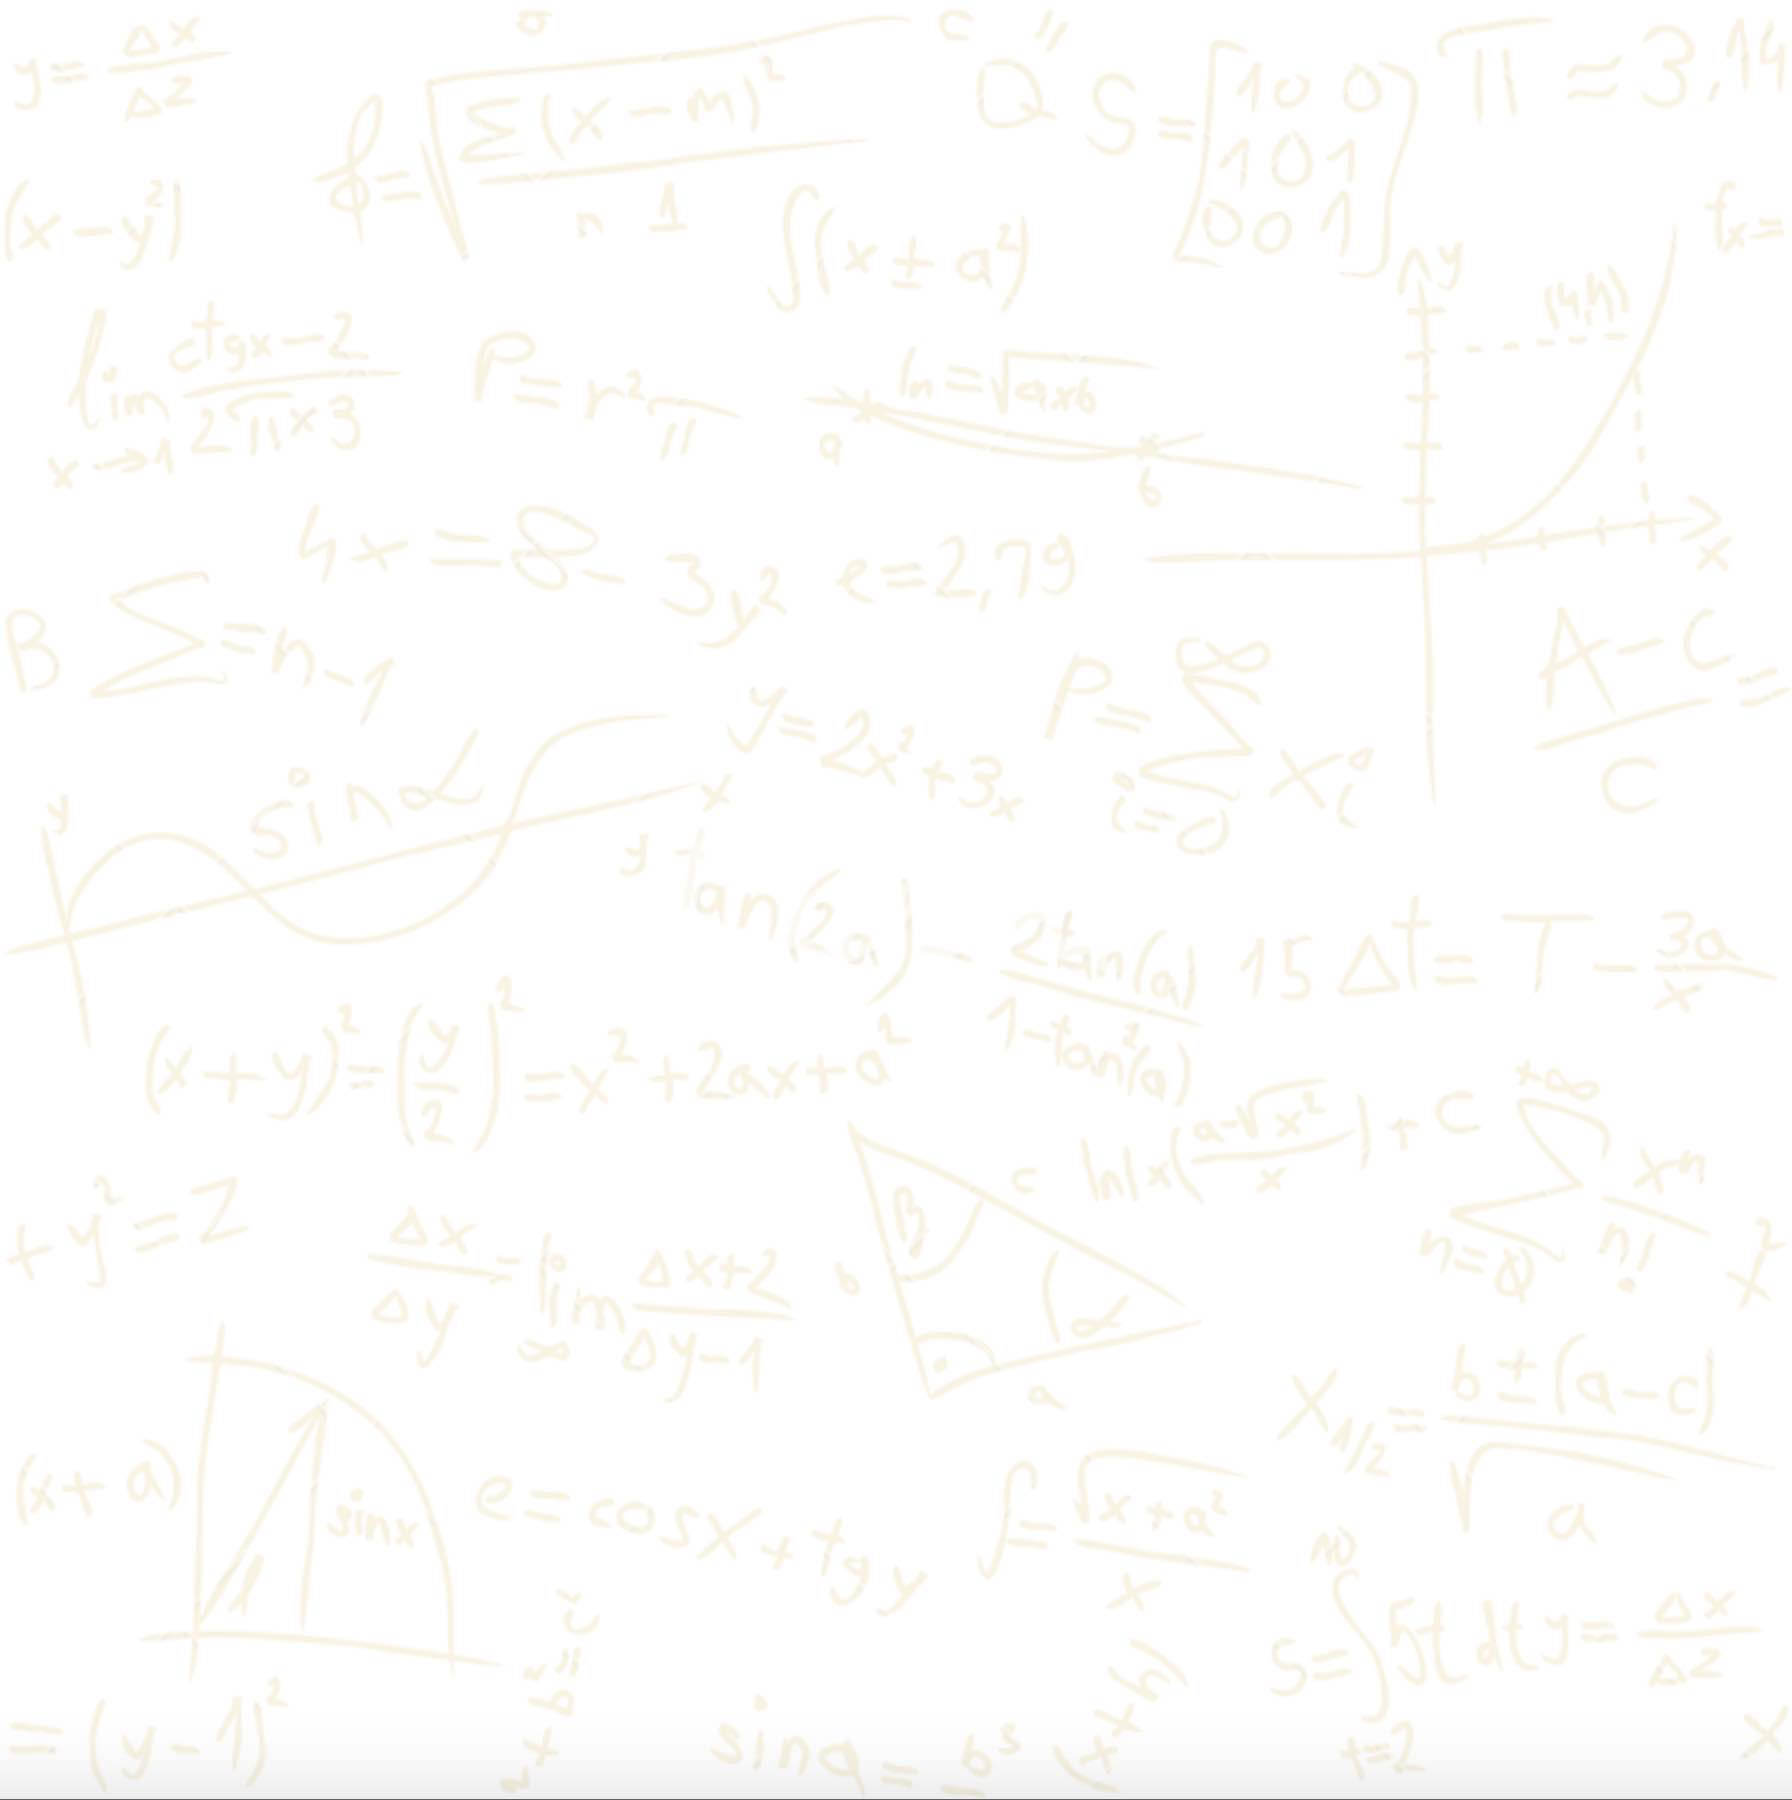 y = Δx/Δ2
f = √(Σ(x − m)²/n 1)
a
c
Q"
S = [1 0 0
1 0 1
0 0 1]
π ≈ 3,14
(x − y²)
∫(x ± a²)
fx =
y
(4,4)
lim x→1 (ctgx − 2)/(2π × 3)
P = r²π
ln = √(axb)
a
b
x
4x = 8 − 3y²
e = 2,79
B Σ = n − 1
y = 2x² + 3x
P = Σ i=0 ∞ xi
(A − C)/C =
y
sin α
x
y
tan(2a) − 2tan(a)/(1 − tan²(a))
15 Δt = T − 3a/x
(x + y)² = (y/2)² = x² + 2ax + a²
ln|x((a − √x²)/x)| + C
Σ n=0 +∞ xⁿ/n!
+ y² = Z
Δx/Δy = lim ∞ (Δx + 2)/(Δy − 1)
β
c
b
α
a
x²
X1/2 = (b ± (a − c))/√a
(x + a)
sinx
1
e = cosx + tgy
∫ = √(x + a²)/x
S = ∫ t=2 ∞ 5t dt
y = Δx/Δ2
= (y − 1)²
² + b² = c²
sin a = b³
(x + h)
x